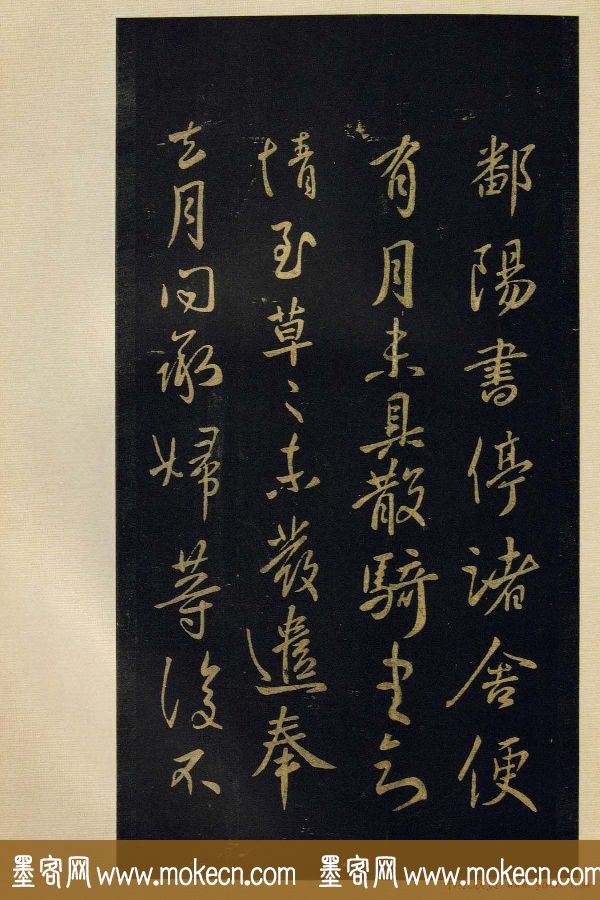 鄱陽書停諸舍便
有月未具散騎
情至草〻未發遣奉
去月問承婦等復不
墨客网 www.mokecn.com 墨客网 www.mokecn.com